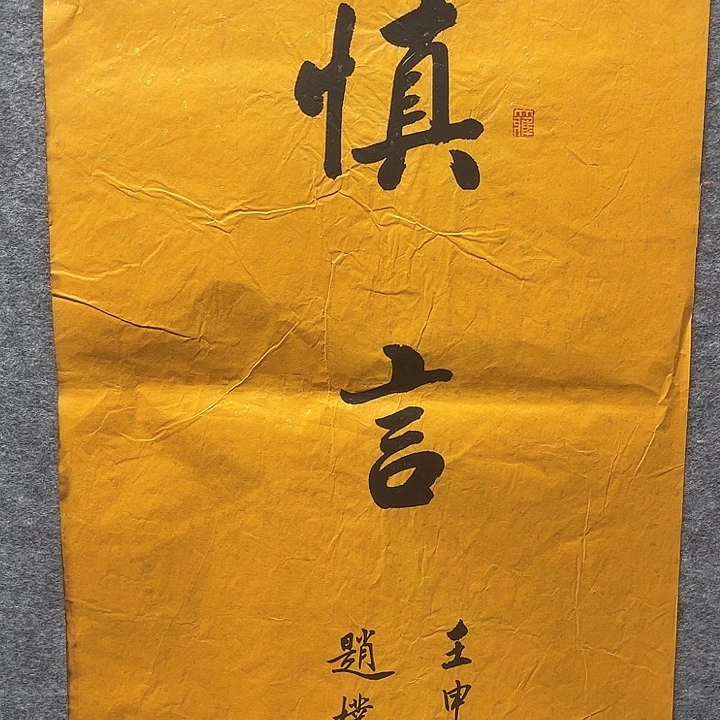 慎
言
壬申
趙樸